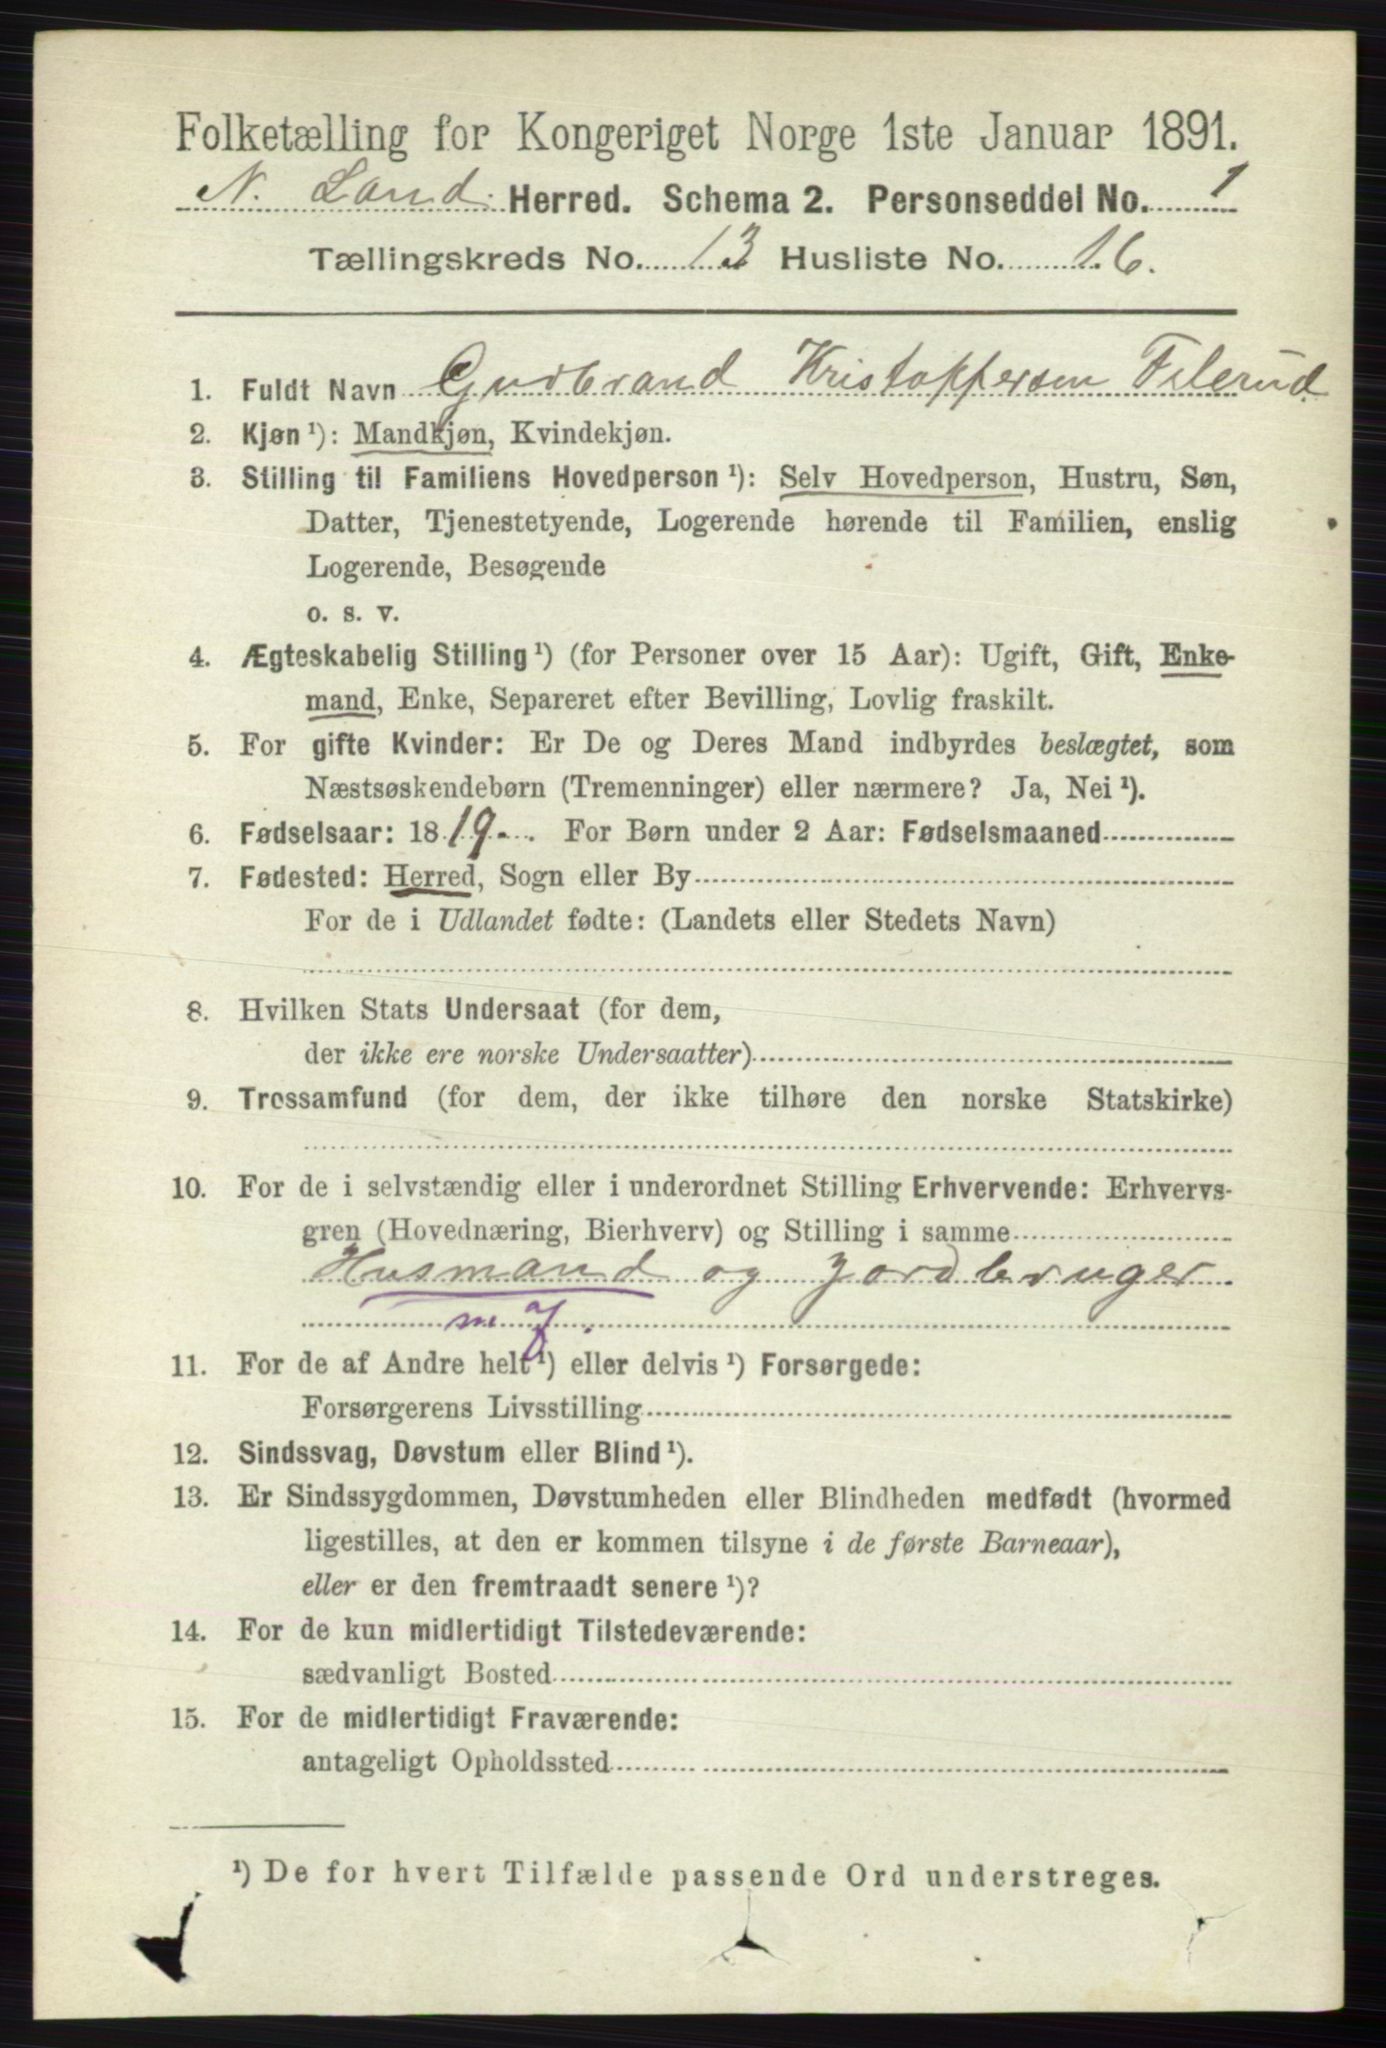 Folketælling for Kongeriget Norge 1ste Januar 1891.
N. Land Herred. Schema 2. Personseddel No. 1
Tællingskreds No. 13 Husliste No. 16.
1. Fuldt Navn Gudbrand Kristoffersen
2. Kjøn ¹): Mandkjøn, Kvindekjøn.
3. Stilling til Familiens Hovedperson ¹): Selv Hovedperson, Hustru, Søn,
Datter, Tjenestetyende, Logerende hørende til Familien, enslig
Logerende, Besøgende
o. s. v.
4. Ægteskabelig Stilling ¹) (for Personer over 15 Aar): Ugift, Gift, Enke-
mand, Enke, Separeret efter Bevilling, Lovlig fraskilt.
5. For gifte Kvinder: Er De og Deres Mand indbyrdes beslægtet, som
Næstsøskendebørn (Tremenninger) eller nærmere? Ja, Nei ¹).
6. Fødselsaar: 1819. For Børn under 2 Aar: Fødselsmaaned
7. Fødested: Herred, Sogn eller By
For de i Udlandet fødte: (Landets eller Stedets Navn)
8. Hvilken Stats Undersaat (for dem,
der ikke ere norske Undersaatter)
9. Trossamfund (for dem, der ikke tilhøre den norske Statskirke)
10. For de i selvstændig eller i underordnet Stilling Erhvervende: Erhvervs-
gren (Hovednæring, Bierhverv) og Stilling i samme
Husmand og Jordbruger
m. J.
11. For de af Andre helt ¹) eller delvis ¹) Forsørgede:
Forsørgerens Livsstilling
12. Sindssvag, Døvstum eller Blind ¹).
13. Er Sindssygdommen, Døvstumheden eller Blindheden medfødt (hvormed
ligestilles, at den er kommen tilsyne i de første Barneaar),
eller er den fremtraadt senere ¹)?
14. For de kun midlertidigt Tilstedeværende:
sædvanligt Bosted
15. For de midlertidigt Fraværende:
antageligt Opholdssted
¹) De for hvert Tilfælde passende Ord understreges.